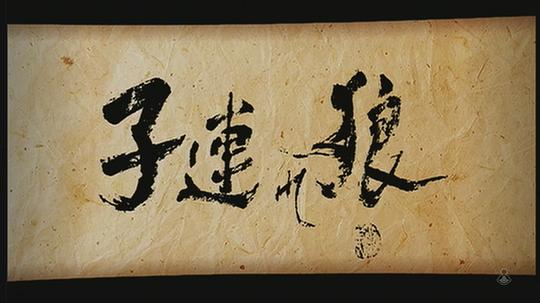 子連れ狼